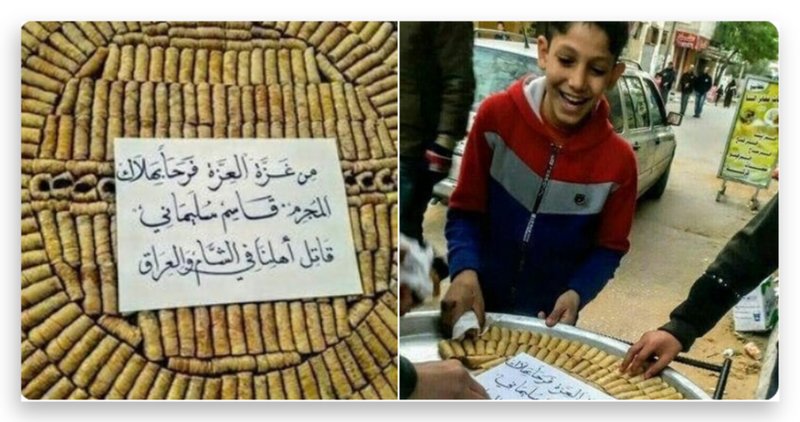 من غَزَّة العِزَّة فَرَحَاً بِهَلاك
المُجرِم: قَاسِم سُليماني
قاتِل أهلنَا في الشَّام والعِراق
العزة فرحاً
سليماني